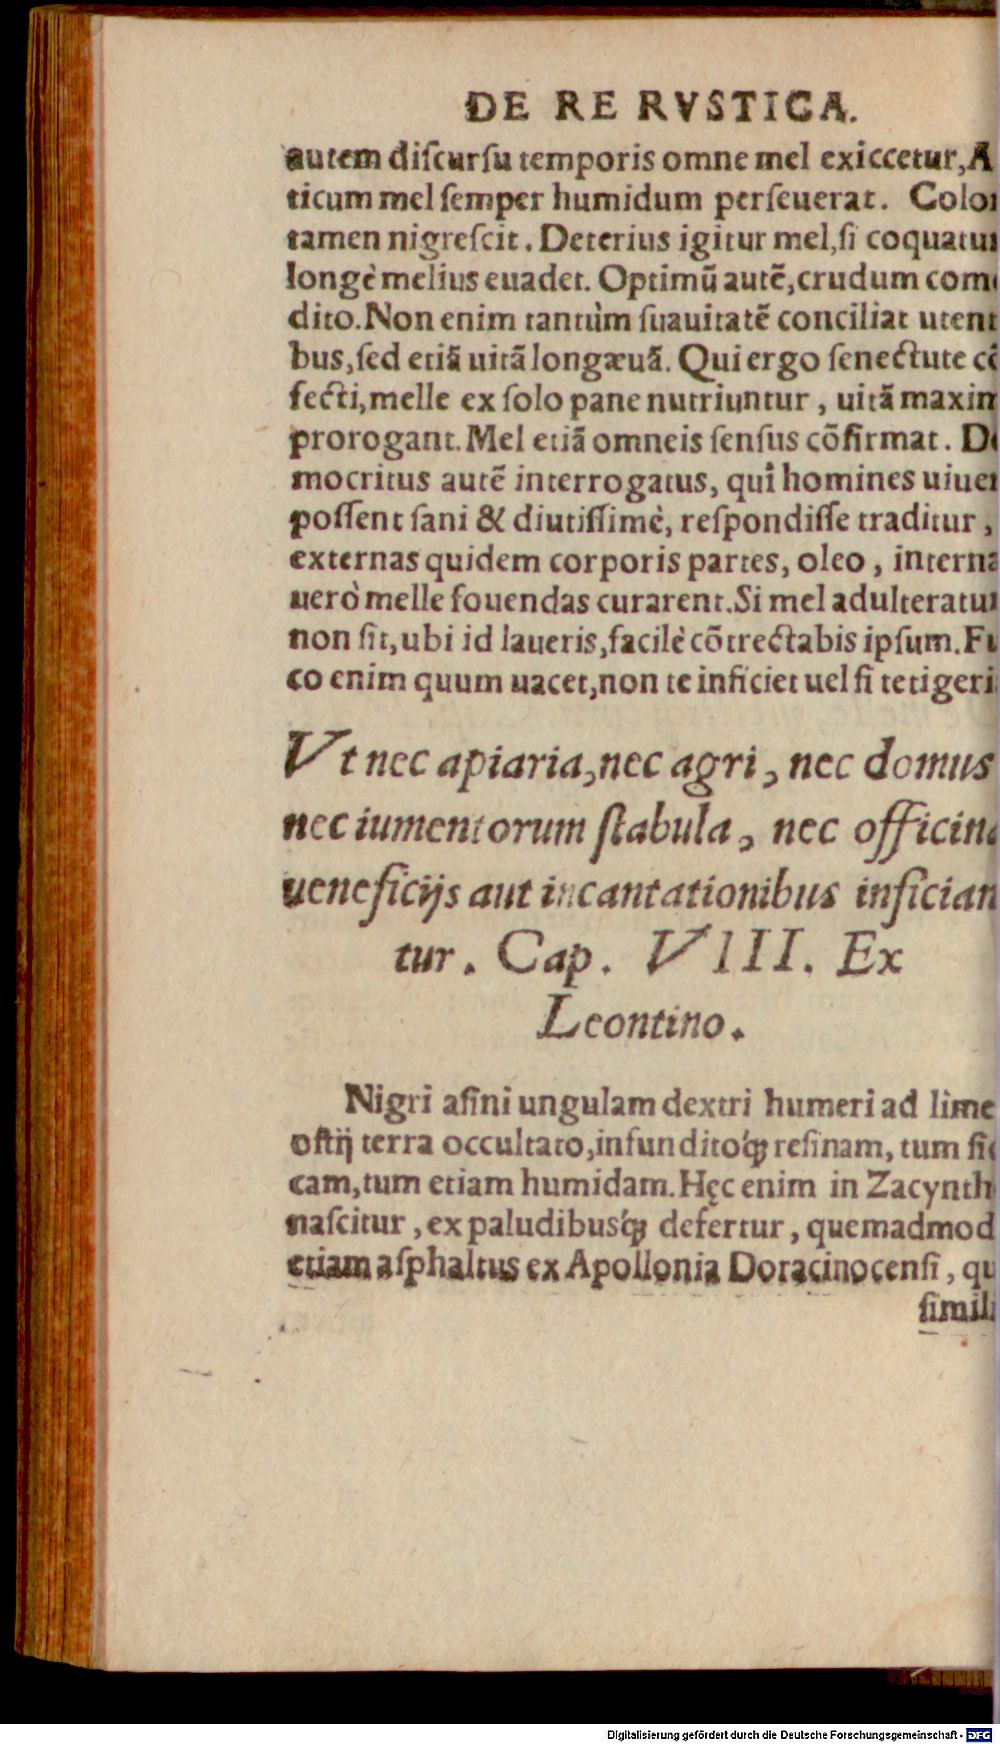 DE RE RVSTICA.
autem diſcurſu temporis omne mel exiccetur, A
ticum mel ſemper humidum perſeuerat. Color
tamen nigreſcit. Deterius igitur mel, ſi coquatur
longè melius euadet. Optimũ autẽ, crudum com
dito. Non enim tantùm ſuauitatẽ conciliat utent
bus, ſed etiã uitã longæuã. Qui ergo ſenectute cõ
fecti, melle ex ſolo pane nutriuntur, uitã maxim
prorogant. Mel etiã omneis ſenſus cõfirmat. De
mocritus autẽ interrogatus, quî homines uiuer
poſſent ſani & diutiſſimè, reſpondiſſe traditur,
externas quidem corporis partes, oleo, interna
uerò melle fouendas curarent. Si mel adulteratum
non ſit, ubi id laueris, facilè cõtrectabis ipſum. Fu
co enim quum uacet, non te inficiet uel ſi tetigeri
Vt nec apiaria, nec agri, nec domus
nec iumentorum ſtabula, nec officinæ
ueneficijs aut incantationibus inſician
tur. Cap. VIII. Ex
Leontino.
Nigri aſini ungulam dextri humeri ad lime
oſtij terra occultato, infunditoq́; reſinam, tum ſic
cam, tum etiam humidam. Hęc enim in Zacynth
naſcitur, ex paludibusq́; defertur, quemadmod
etiam aſphaltus ex Apollonia Doracinocenſi, qu
ſimili
Digitalisierung gefördert durch die Deutsche Forschungsgemeinschaft - DFG